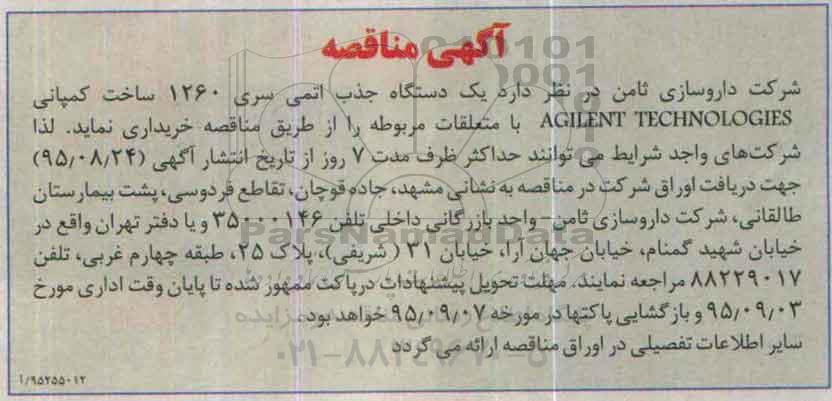 آگهی مناقصه
شرکت داروسازی ثامن در نظر دارد یک دستگاه جذب اتمی سری ۱۲۶۰ ساخت کمپانی
AGILENT TECHNOLOGIES با متعلقات مربوطه را از طریق مناقصه خریداری نماید. لذا
شرکت‌های واجد شرایط می توانند حداکثر ظرف مدت ۷ روز از تاریخ انتشار آگهی (۹۵/۰۸/۲۴)
جهت دریافت اوراق شرکت در مناقصه به نشانی مشهد، جاده قوچان، تقاطع فردوسی، پشت بیمارستان
طالقانی، شرکت داروسازی ثامن- واحد بازرگانی داخلی تلفن ۳۵۰۰۰۱۴۶ و یا دفتر تهران واقع در
خیابان شهید گمنام، خیابان جهان آرا، خیابان ۳۱ (شریفی)، پلاک ۲۵، طبقه چهارم غربی، تلفن
۸۸۲۲۹۰۱۷ مراجعه نمایند. مهلت تحویل پیشنهادات در پاکت ممهور شده تا پایان وقت اداری مورخ
۹۵/۰۹/۰۳ و بازگشایی پاکتها در مورخه ۹۵/۰۹/۰۷ خواهد بود.
سایر اطلاعات تفصیلی در اوراق مناقصه ارائه می گردد
۱/۹۵۲۵۵۰۱۲
ParsNamadData